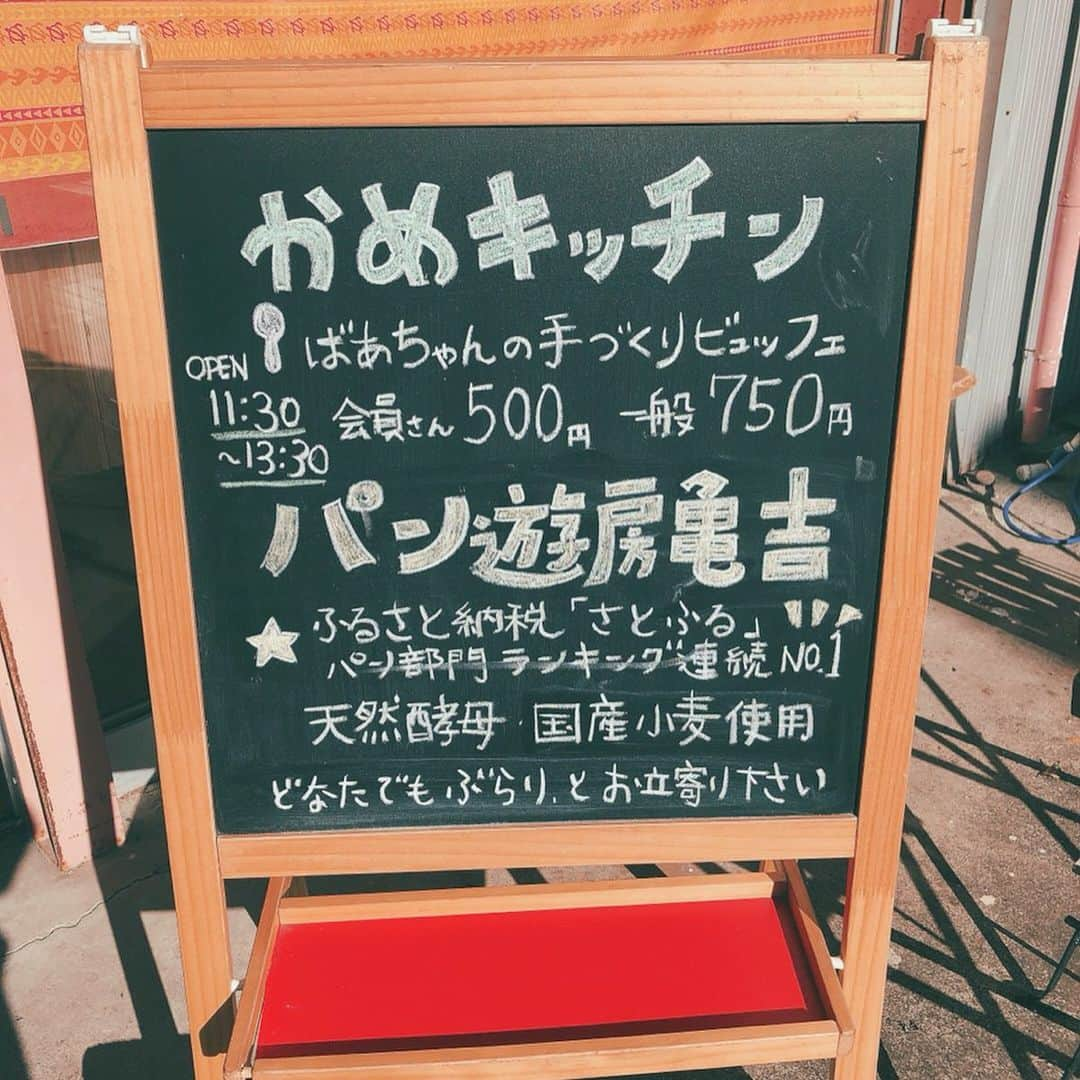 かめキッチン
ばあちゃんの手づくりビュッフェ
OPEN
11:30
~13:30
会員さん500円 一般750円
パン遊房亀吉
★ ふるさと納税「さとふる」
パン部門ランキング連続NO.1
天然酵母・国産小麦使用
どなたでもぶらりとお立寄り下さい